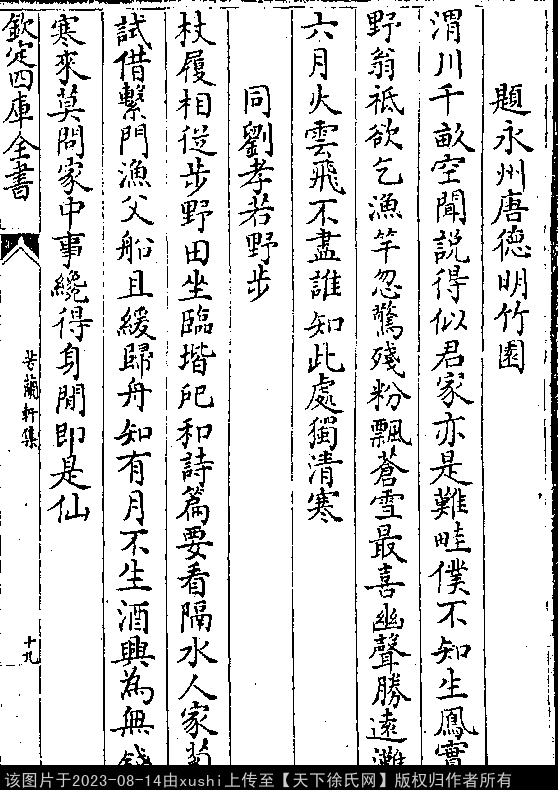 題永州唐德明竹園
渭川千畝空聞說得似君家亦是難畦僕不知生鳳實
野翁祗欲乞漁竿忽驚殘粉飄蒼雪最喜幽聲勝遠灘
六月火雲飛不盡誰知此處獨清寒
同劉孝若野步
杖履相從步野田坐臨堦戺和詩篇要看隔水人家菊
試借繫門漁父船且緩歸舟知有月不生酒興為無錢
寒來莫問家中事纔得身閒即是仙
欽定四庫全書
芳蘭軒集
十九
该图片于2023-08-14由xushi上传至【天下徐氏网】版权归作者所有